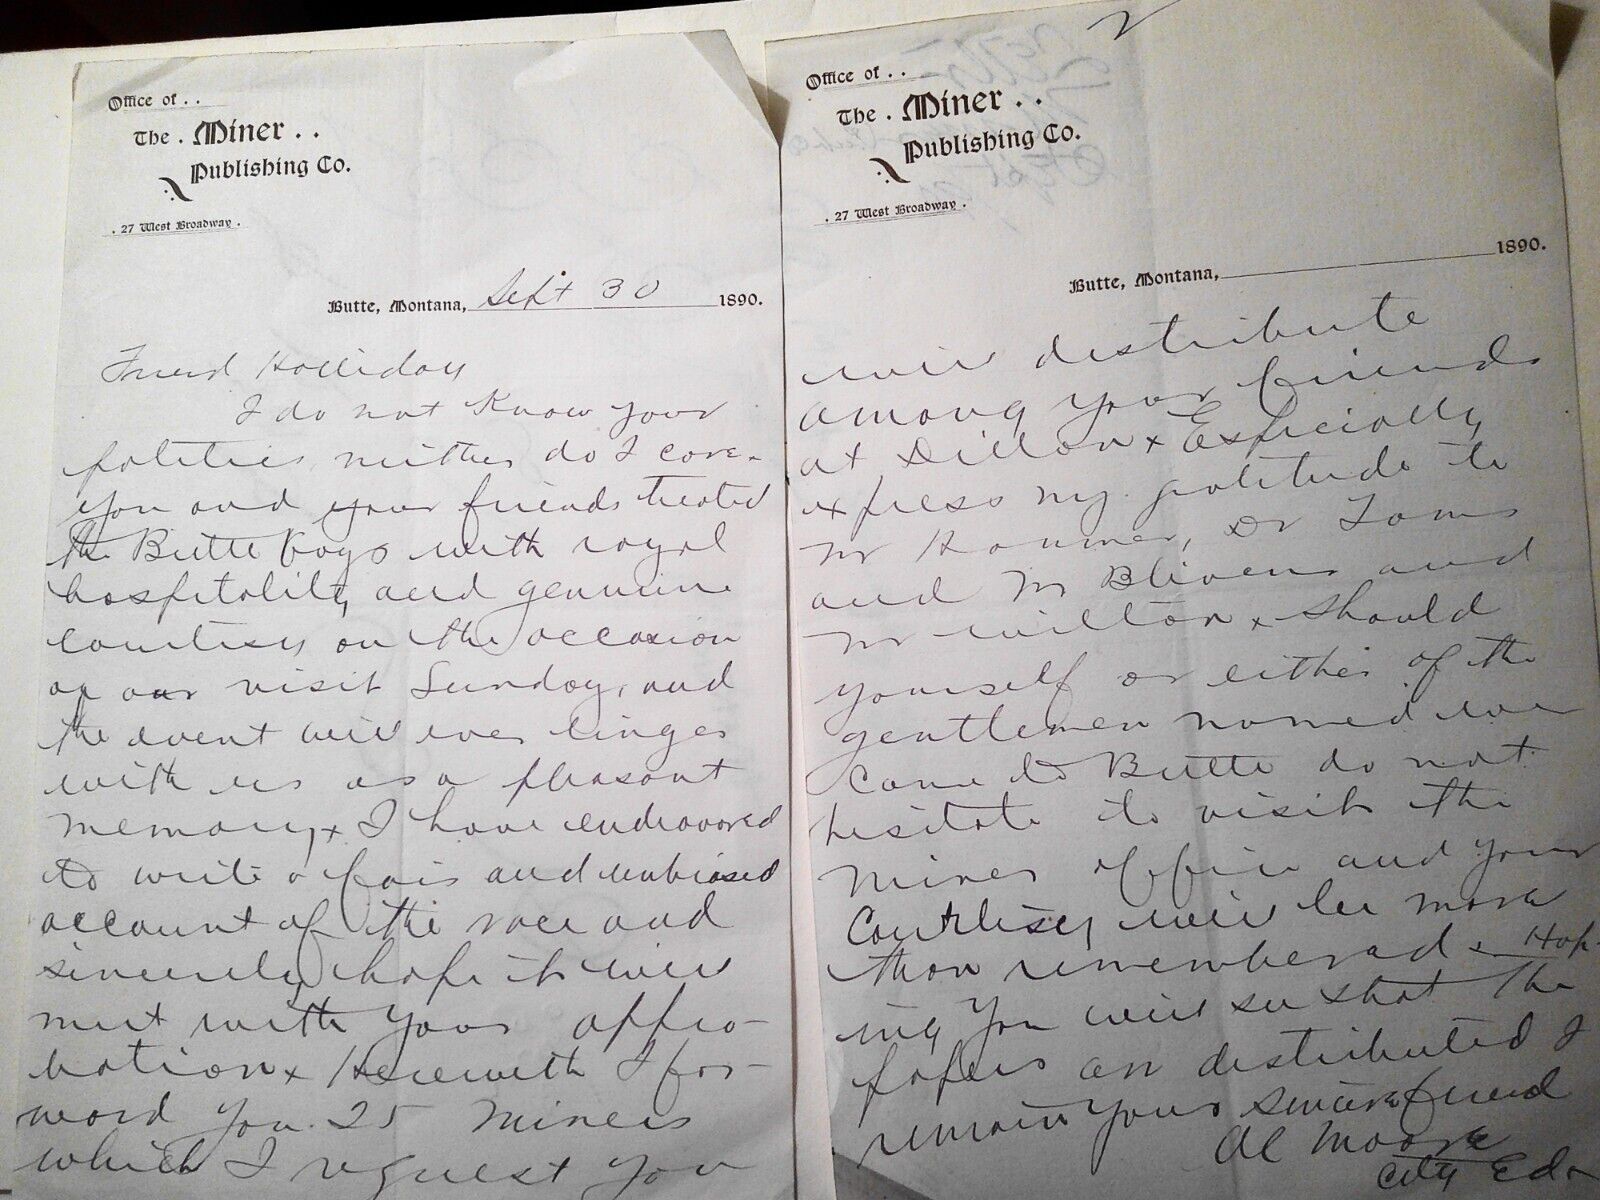 Office of . .
The . Miner . .
Publishing Co.
. 27 West Broadway .
Butte, Montana, Sept 30 1890.
Friend Holliday
I do not Know your
politics neither do I care.
You and your friends treated
the Butte boys with royal
hospitality and genuine
courtesy on the occasion
of our visit Sunday, and
the event will ever linger
with us as a pleasant
memory x I have endeavored
to write a fair and unbiased
account of the race and
sincerely hope it will
meet with your appro-
bation x Herewith I for-
ward you 25 Miners
which I request you
2
Office of . .
The . Miner . .
Publishing Co.
. 27 West Broadway .
Butte, Montana, 1890.
will distribute
among your friends
at Dillon x Especially
express my gratitude to
Mr Dr
and Mr Blivens and
Mr Wilton x Should
yourself or either of the
gentlemen named ever
come to Butte do not
hesitate to visit the
Miner office and your
Courtesy will be more
than remembered x Hop-
ing you will see that the
papers are distributed I
remain your sincere friend
Al Moore
City Edr